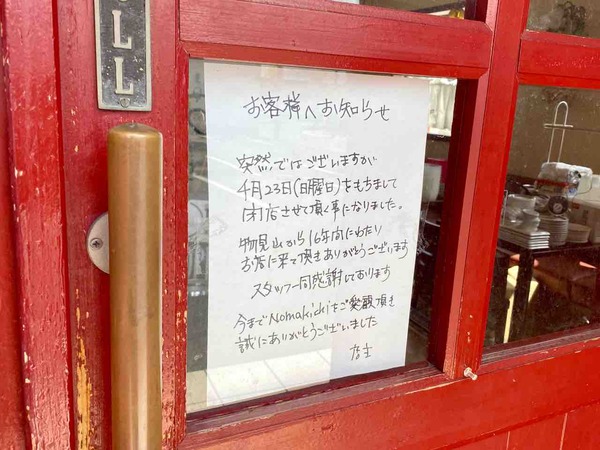 ULL
お客様へお知らせ
突然ではございますが
4月23日(日曜日)をもちまして
閉店させて頂く事になりました。
物見山から16年間にわたり
お店に来て頂きありがとうございます
スタッフ一同感謝しております
今までNomakichiをご愛顧頂き
誠にありがとうございました
店主